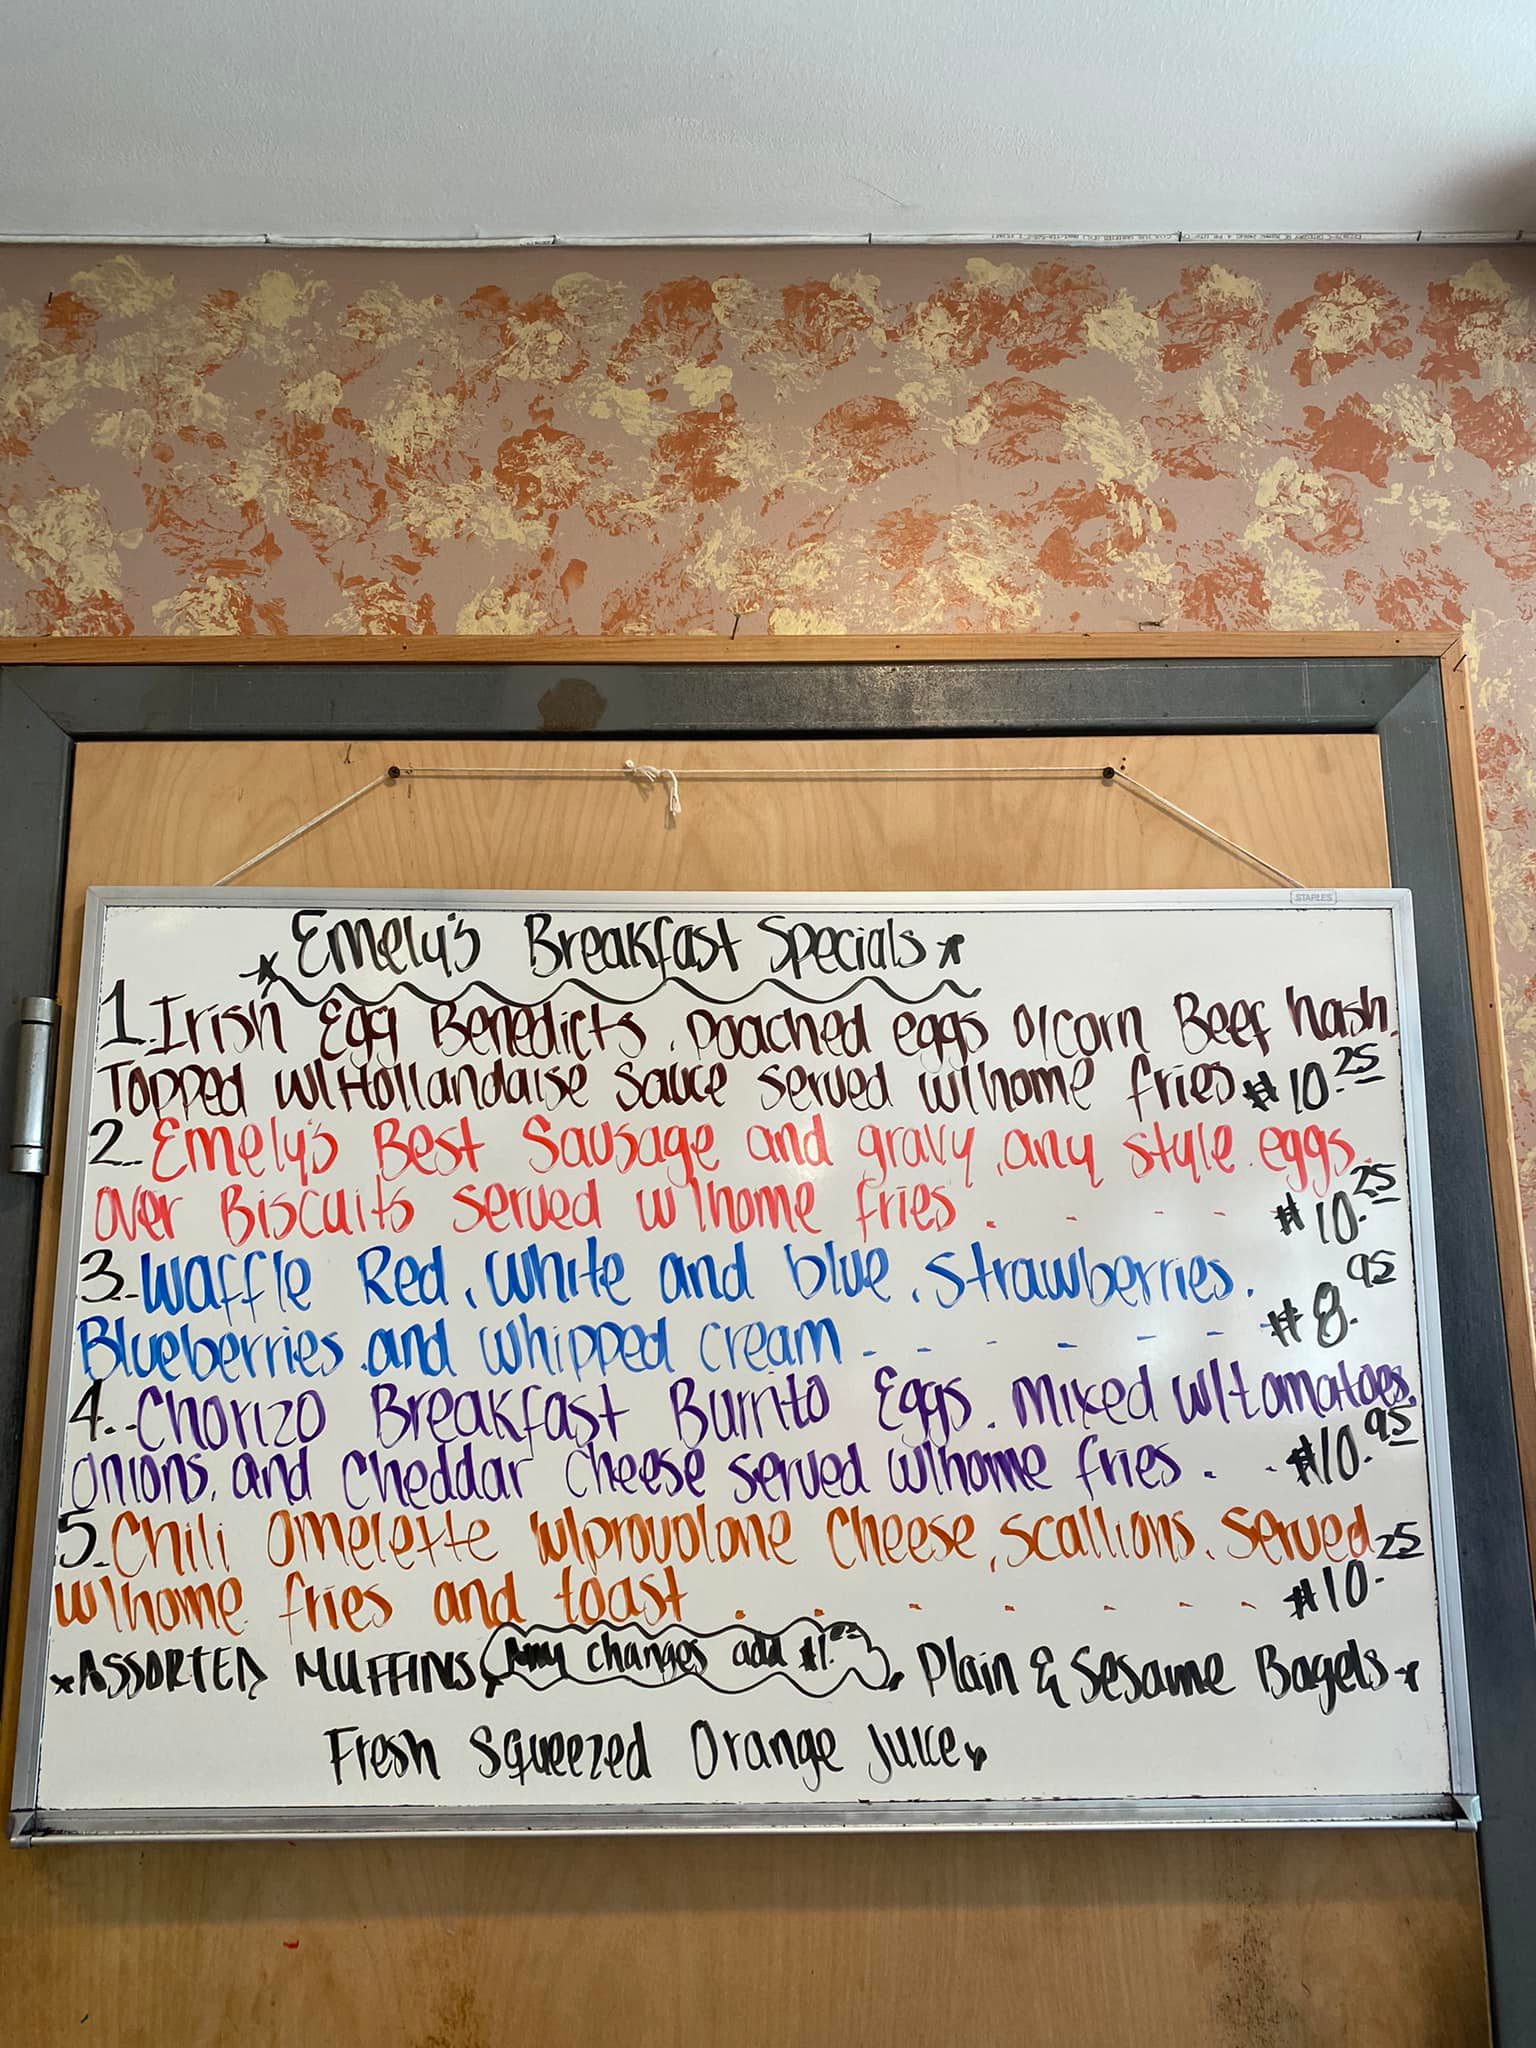 STAPLES
*Emely's Breakfast Specials*
1. Irish Egg Benedicts. poached eggs o/corn Beef hash.
Topped w/Hollandaise sauce served w/home fries $10.25
2. Emely's Best Sausage and gravy, any style. eggs.
over Biscuits served w/home fries . - - - $10.25
3. Waffle Red, White and blue, Strawberries.
Blueberries and whipped cream - - - - - - $8.95
4. Chorizo Breakfast Burrito Eggs. Mixed w/tomatoes,
onions, and Cheddar cheese served w/home fries . . $10.95
5. Chili Omelette w/provolone Cheese, scallions. Served
w/home fries and toast . . - - - - - $10.25
*ASSORTED MUFFINS* Any changes add $1. *Plain & Sesame Bagels*
Fresh Squeezed Orange Juice*